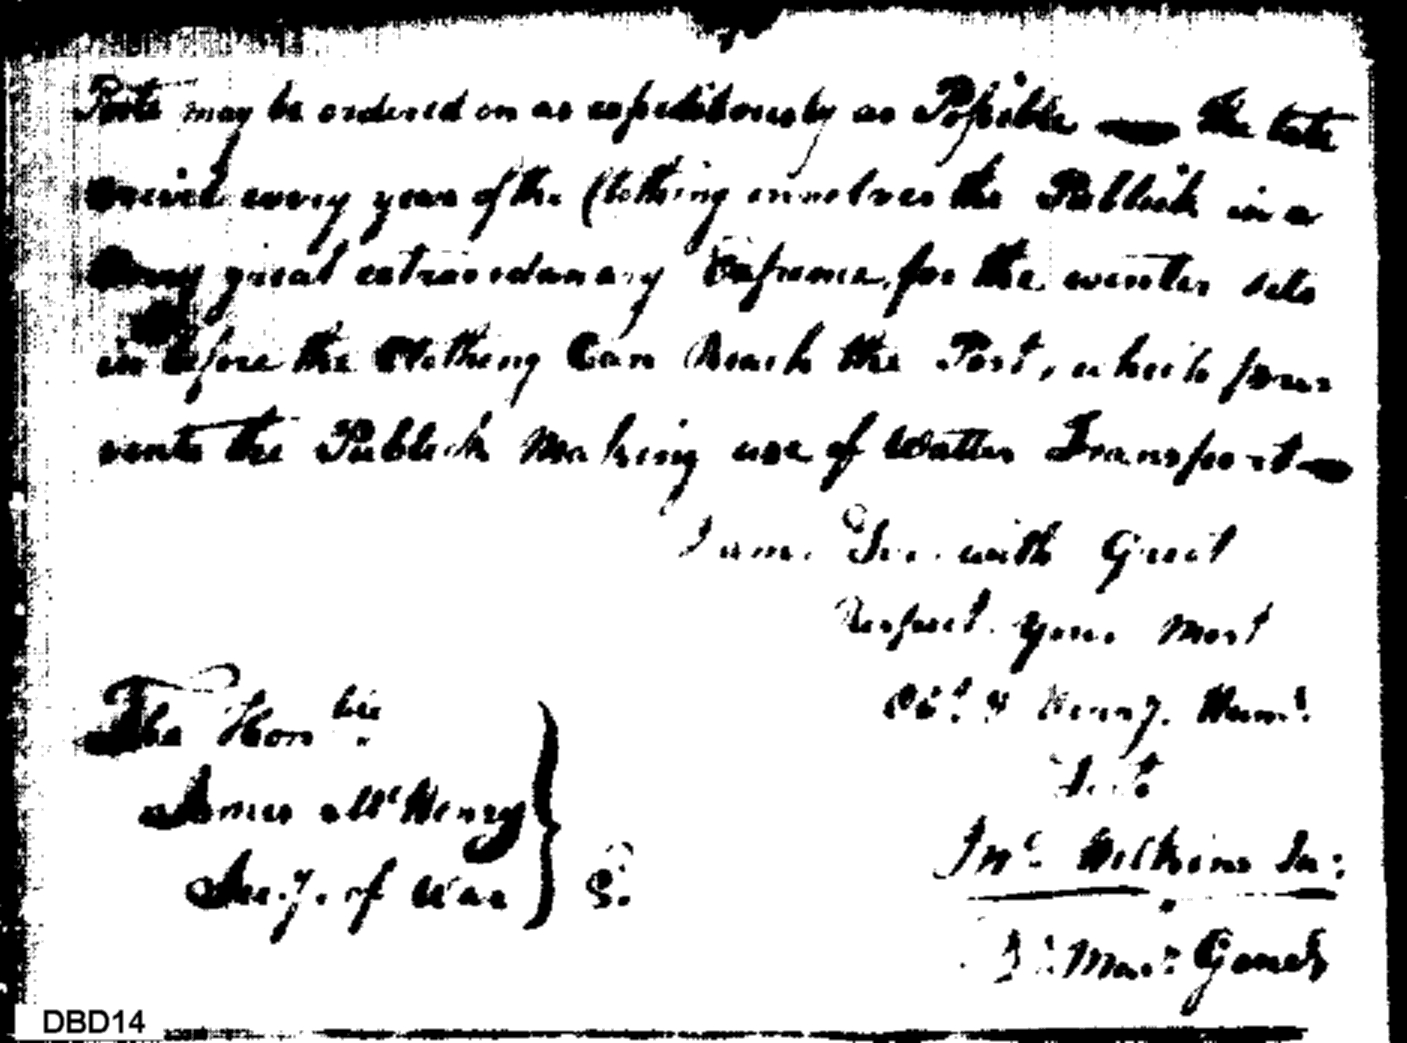 Posts may be ordered on as expeditiously as Possible — The late
arival every year of the Clothing involves the Publick in a
very great extraordanary Expence, for the winter sets
in before the Clothing Can Reach the Post, which pre
vents the Publick Making use of Watter Transport —
I am Sir with Great
Respect your Most
Obt. & Hum.
Servt.
The Honble
James McHenry
Secy. of War
Jno. Wilkins Jr:
Qr. Mastr. Genel
DBD14